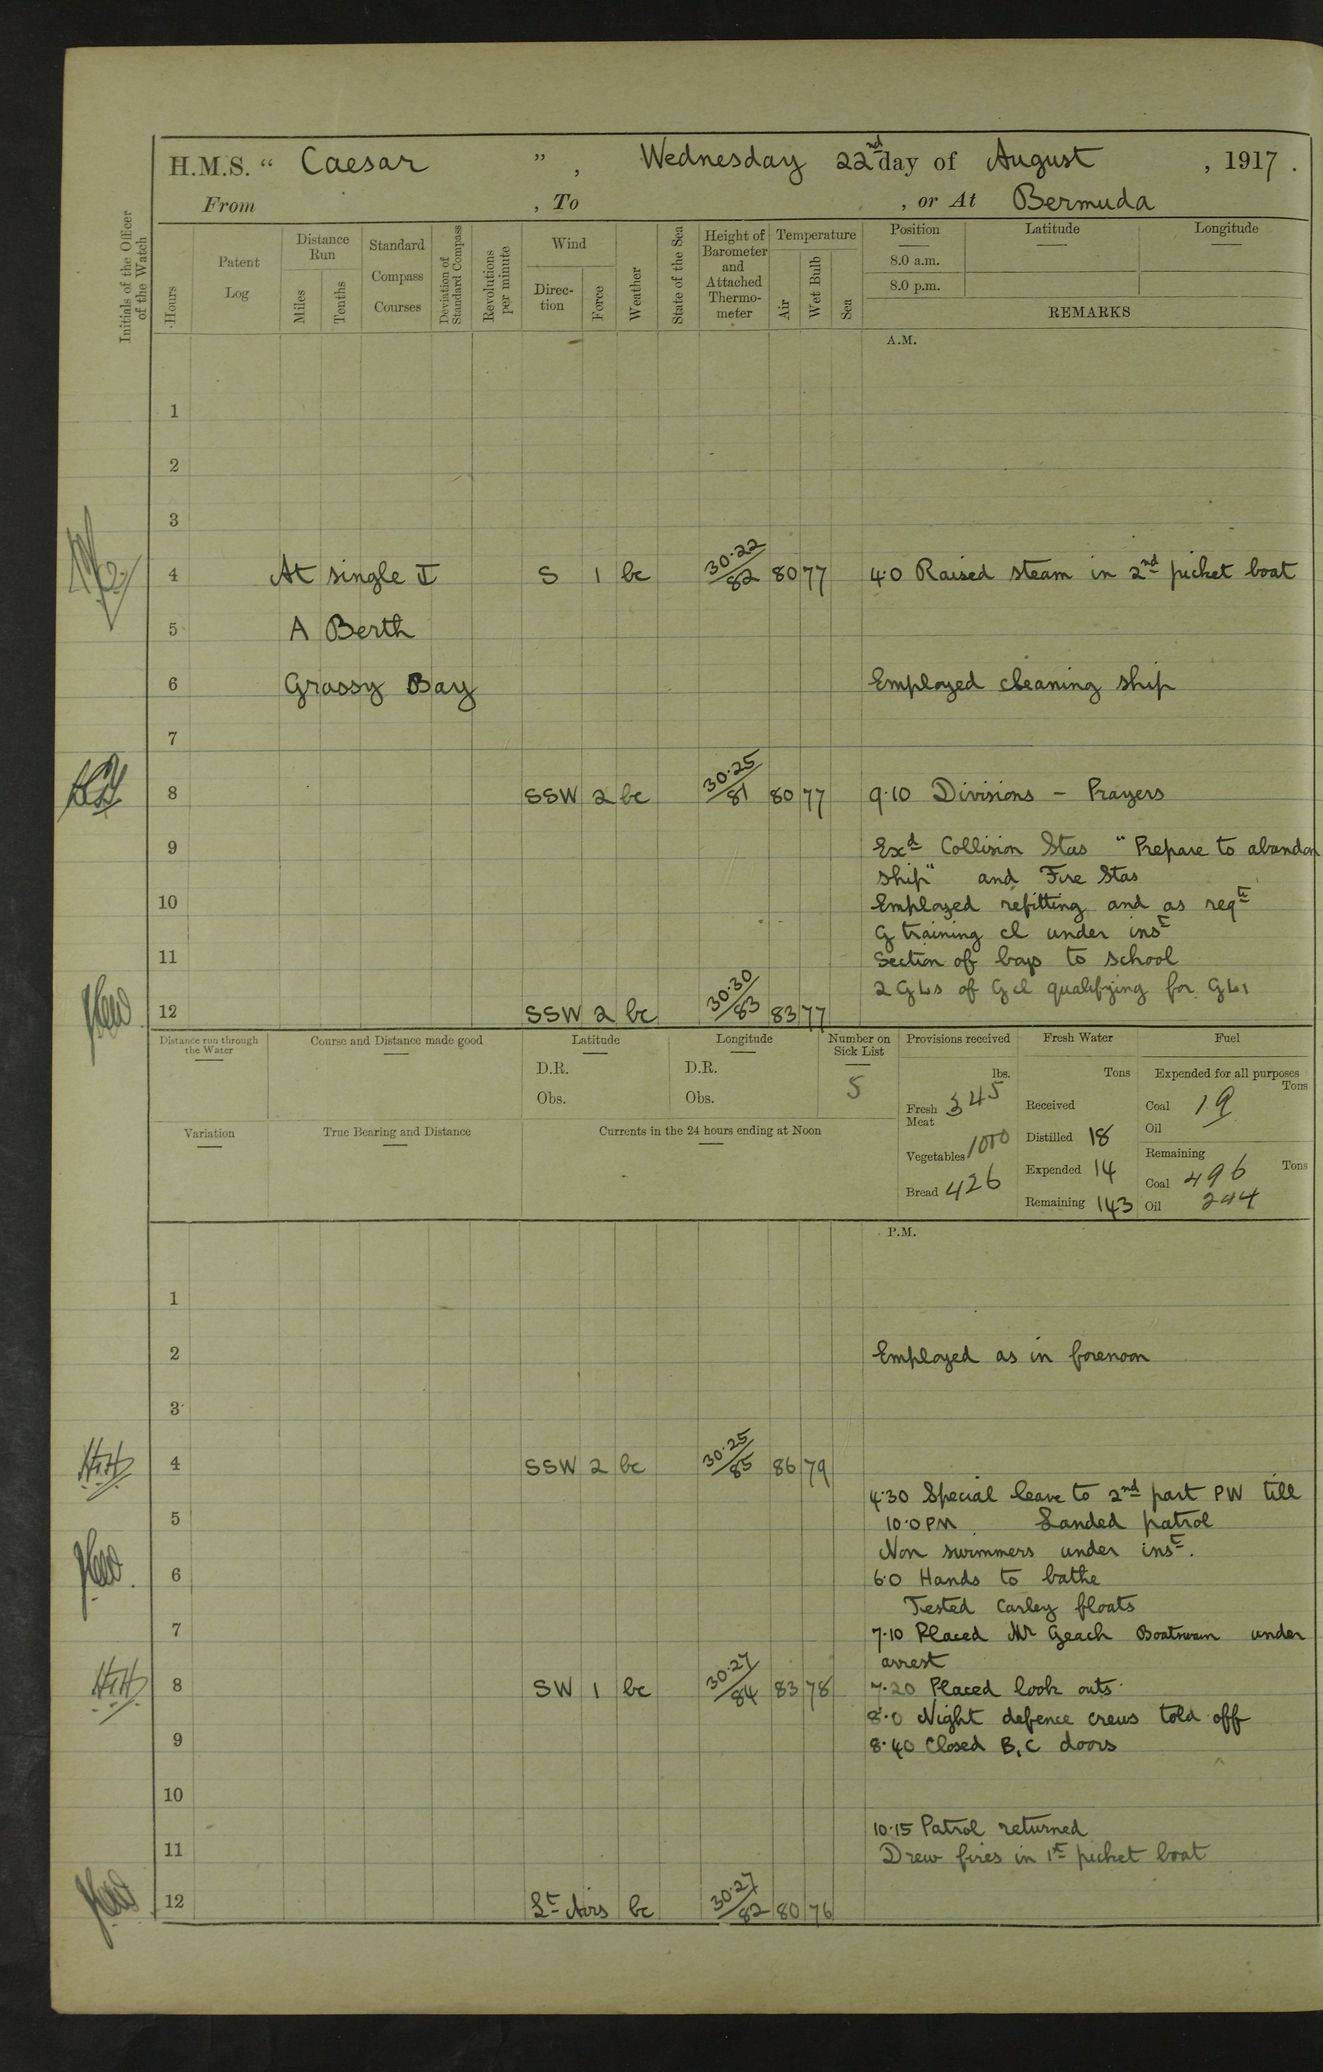 H.M.S. " Caesar ", Wednesday 22nd day of August, 1917.
From , To , or At Bermuda
Initials of the Officer of the Watch
Hours
Patent Log
Distance Run
Miles
Tenths
Standard Compass Courses
Deviation of Standard Compass
Revolutions per minute
Wind
Direction
Force
Weather
State of the Sea
Height of Barometer and Attached Thermometer
Temperature
Air
Wet Bulb
Sea
Position Latitude Longitude
8.0 a.m.
8.0 p.m.
REMARKS
A.M.
1
2
3
4 At single I S 1 bc 30.22/82 80 77 4.0 Raised steam in 2nd picket boat
5 A Berth
6 Grassy Bay Employed cleaning ship
7
8 SSW 2 bc 30.25/81 80 77 9.10 Divisions – Prayers
9 Exd Collision Stas "Prepare to abandon
ship" and Fire Stas
10 Employed refitting and as reqte
G training cl under inst
11 Section of boys to school
2 GLs of G cl qualifying for GL1
12 SSW 2 bc 30.30/83 83 77
Distance run through the Water
Course and Distance made good
Latitude
D.R.
Obs.
Longitude
D.R.
Obs.
Number on Sick List
5
Provisions received
lbs.
Fresh Meat 345
Vegetables 1000
Bread 426
Fresh Water
Tons
Received
Distilled 18
Expended 14
Remaining 143
Fuel
Expended for all purposes
Tons
Coal 19
Oil
Remaining
Tons
Coal 496
Oil 244
Variation
True Bearing and Distance
Currents in the 24 hours ending at Noon
P.M.
1
2 Employed as in forenoon
3
4 SSW 2 bc 30.25/85 86 79
4.30 Special leave to 2nd part PW till
5 10.0 PM Landed patrol
Non swimmers under inst.
6 6.0 Hands to bathe
Tested Carley floats
7 7.10 Placed Mr Geach Boatswain under
arrest
8 SW 1 bc 30.27/84 83 78 7.20 Placed look outs
8.0 Night defence crews told off
9 8.40 Closed B, C doors
10
10.15 Patrol returned
11 Drew fires in 1st picket boat
12 Lt Airs bc 30.27/82 80 76